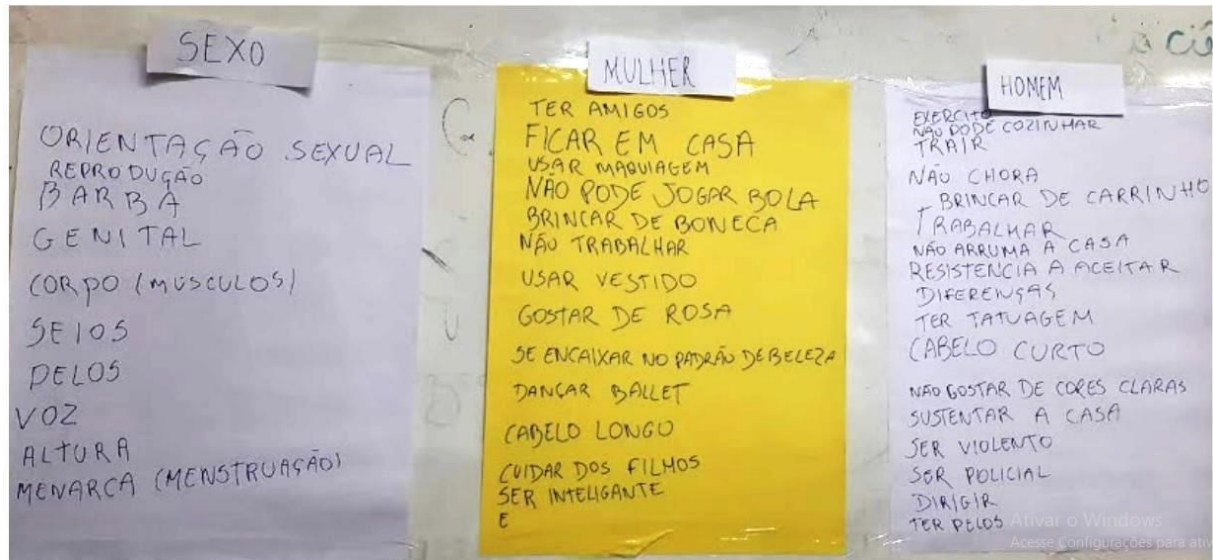 SEXO
ORIENTAÇÃO SEXUAL
REPRODUÇÃO
BARBA
GENITAL
CORPO (MÚSCULOS)
SEIOS
PELOS
VOZ
ALTURA
MENARCA (MENSTRUAÇÃO)
MULHER
TER AMIGOS
FICAR EM CASA
USAR MAQUIAGEM
NÃO PODE JOGAR BOLA
BRINCAR DE BONECA
NÃO TRABALHAR
USAR VESTIDO
GOSTAR DE ROSA
SE ENCAIXAR NO PADRÃO DE BELEZA
DANÇAR BALLET
CABELO LONGO
CUIDAR DOS FILHOS
SER INTELIGANTE
E
HOMEM
EXERCITO
NÃO PODE COZINHAR
TRAIR
NÃO CHORA
BRINCAR DE CARRINHO
TRABALHAR
NÃO ARRUMA A CASA
RESISTENCIA A ACEITAR
DIFERENÇAS
TER TATUAGEM
CABELO CURTO
NÃO GOSTAR DE CORES CLARAS
SUSTENTAR A CASA
SER VIOLENTO
SER POLICIAL
DIRIGIR
TER PELOS
Ativar o Windows
Acesse Configurações para ativ